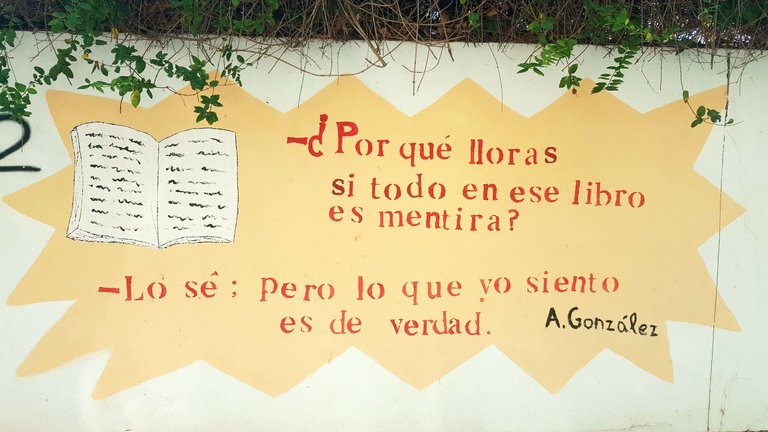 -¿Por qué lloras
si todo en ese libro
es mentira?
-Lo sê; pero lo que yo siento
es de verdad.
A.González
2